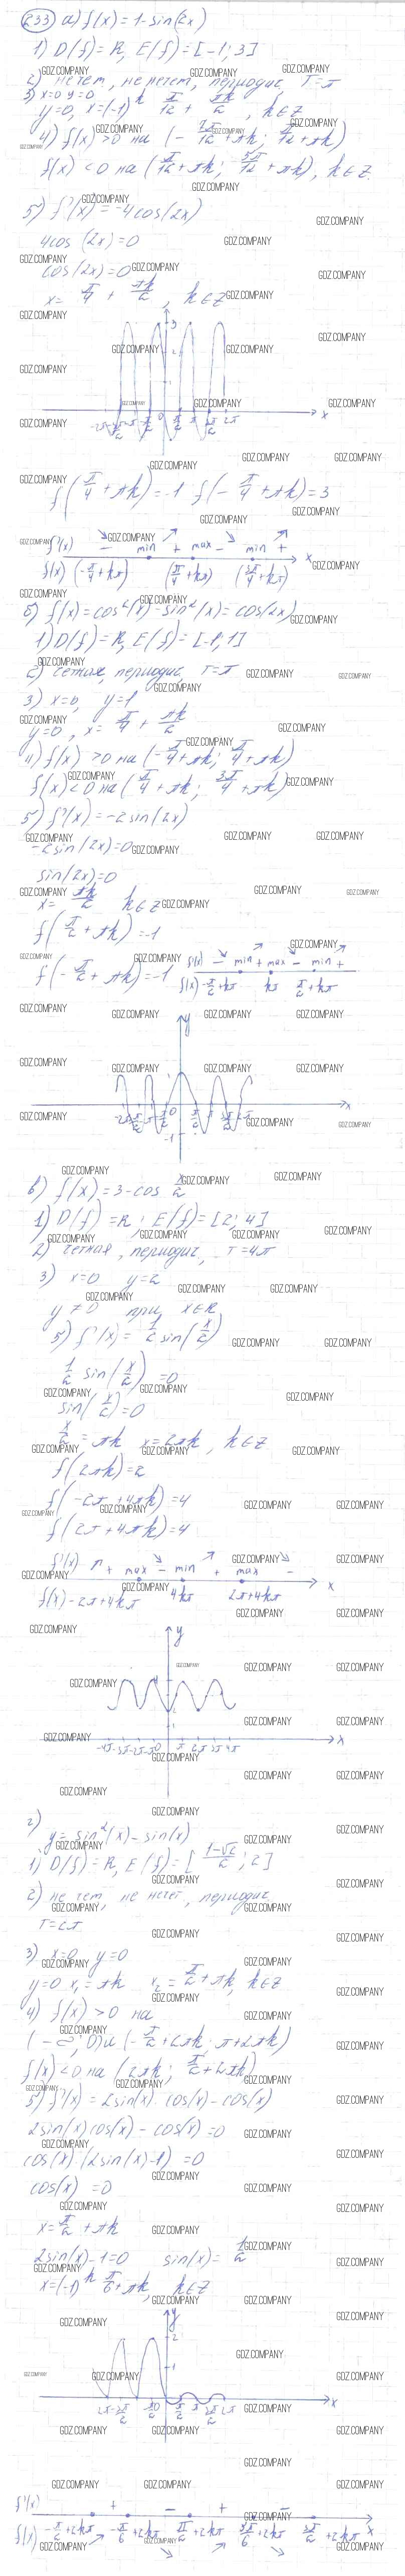 233 а) f(x) = 1-sin(2x)
1) D(f)=R, E(f)=[-1; 3]
2) не чет, не нечет, периодич, T=π
3) x=0 y=0
y=0, x=(-1)^k π/12 + πk/2, k∈Z
4) f(x)>0 на (-7π/12+πk; π/12+πk)
f(x)<0 на (π/12+πk; 5π/12+πk), k∈Z.
5) f'(x)=-4cos(2x)
4cos(2x)=0
cos(2x)=0
x= π/4 + πk/2, k∈Z
f(π/4+πk)=-1 f(-π/4+πk)=3
f'(x) - min + max - min + x
f(x) (-π/4+kπ) (π/4+kπ) (3π/4+kπ)
б) f(x)=cos²(x)-sin²(x)=cos(2x)
1) D(f)=R, E(f)=[-1,1]
2) четная, периодич, T=π
3) x=0, y=1
y=0, x= π/4 + πk/2
4) f(x)>0 на (-π/4+πk; π/4+πk)
f(x)<0 на (π/4+πk; 3π/4+πk)
5) f'(x)=-2sin(2x)
-2sin(2x)=0
sin(2x)=0
x= πk/2 k∈Z
f(π/2+πk)=-1
f(-π/2+πk)=-1
f'(x) - min + max - min +
f(x) -π/2+kπ kπ π/2+kπ
в) f(x)=3-cos x/2
1) D(f)=R; E(f)=[2; 4]
2) четная, периодич, T=4π
3) x=0 y=2
y≠0 при x∈R
5) f'(x)= 1/2 sin(x/2)
1/2 sin(x/2)=0
sin(x/2)=0
x/2=πk x=2πk, k∈Z
f(2πk)=2
f(-2π+4πk)=4
f(2π+4πk)=4
f'(x) + max - min + max - x
f(x) -2π+4kπ 4kπ 2π+4kπ
г)
y=sin²(x)-sin(x)
1) D(f)=R, E(f)=[ (1-√2)/2; 2]
2) не чет, не нечет, периодич
T=2π
3) x=0 y=0
y=0 x₁=πk x₂=π/2+πk, k∈Z
4) f(x)>0 на
f(x)<0 на (2πk; π/2+2πk)
5) f'(x)=2sin(x)·cos(x)-cos(x)
2sin(x)cos(x)-cos(x)=0
cos(x)(2sin(x)-1)=0
cos(x)=0
x=π/2+πk
2sin(x)-1=0 sin(x)=1/2
x=(-1)^k π/6+πk, k∈Z
f'(x) + - + - x
f(x) -π/2+2kπ -π/6+2kπ π/2+2kπ 5π/6+2kπ 3π/2+2kπ
GDZ.COMPANY